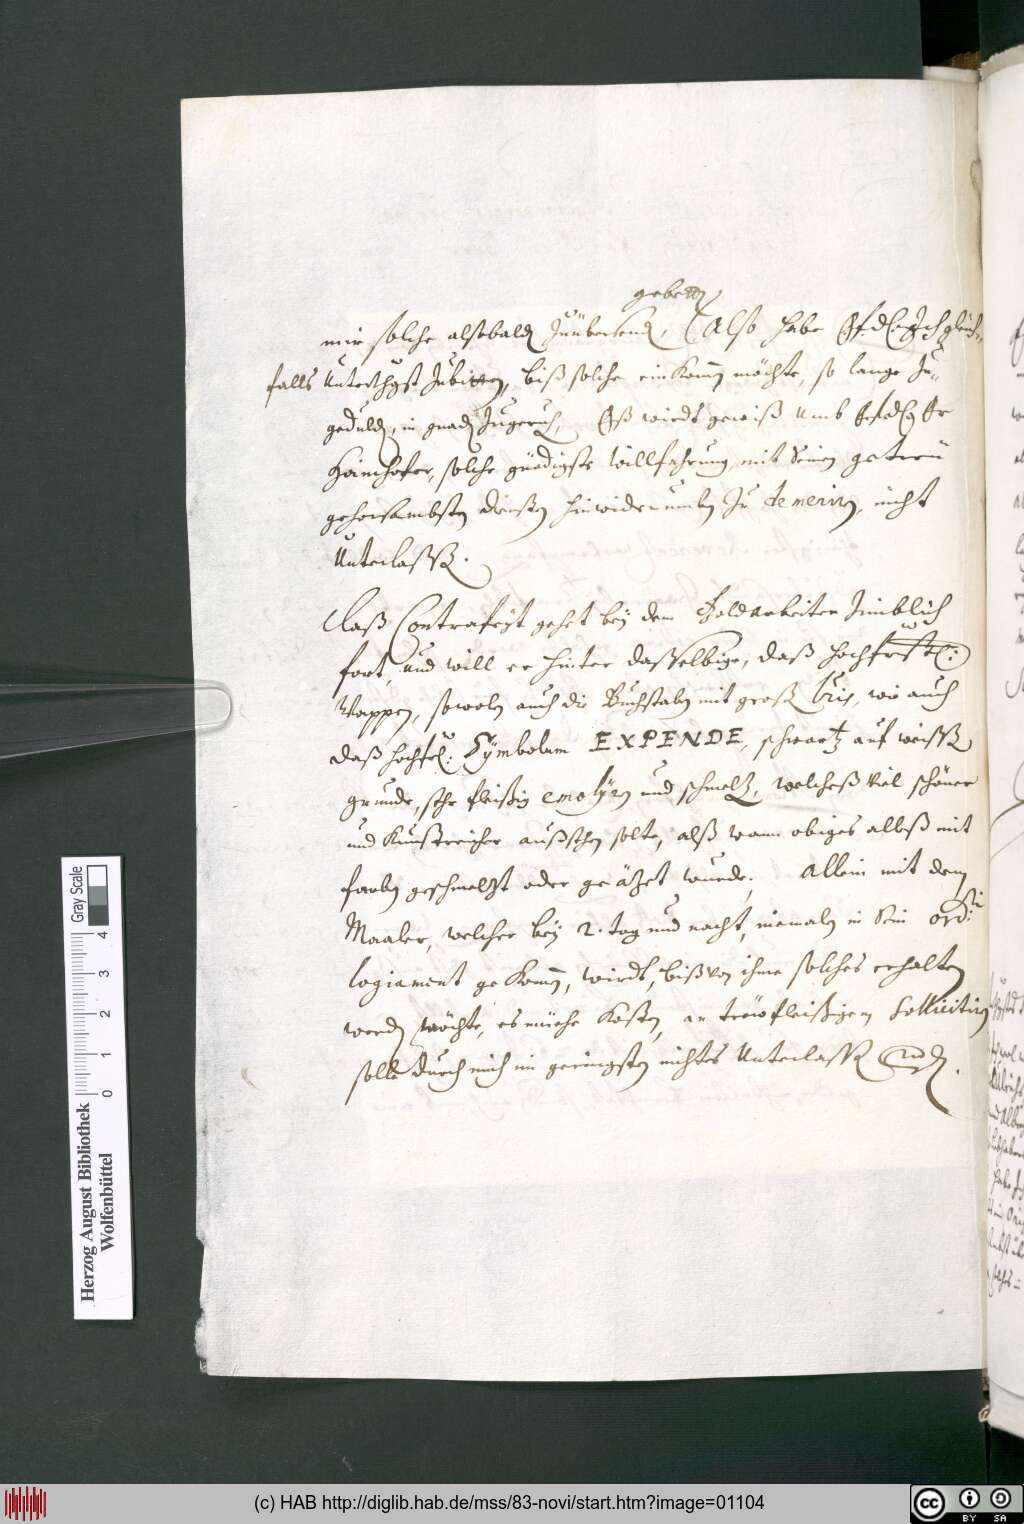 gebetten
mir solche alsobalden zuübersenden, Also habe Ich gleich-
falls Unterthgst zubitten, biß solche einkommen möchte, so lange zu
gedulden, in gnaden zugeruhen, Eß wirdt gewiß umb Hr
Hainhofer, solche gnedigste willfahrung mit Seinen getreu
gehorsambsten diensten hinwiderumben zu demeriren, nicht
Unterlassen.
Daß Contrafeyt gehet bey dem Goldarbeiter zimblich
fort, und will er hinter dasselbige, daß hochfrstl:
Wappen, sowoln auch die Buchstaben mit groß, wie auch
daß hochfrl: Symbolum EXPENDE, schwartz auf weiß
grunde, sehr fleißig emolyren und schmeltz, welcheß viel schöner
und Kunstreicher außsehen solte, alß wann obiges alleß mit
farben geschmeltzt oder geätzet wurde; Allein mit dem
Maaler, welcher bey 2. tag und nacht, niemaln in Sein ordi:
logiament gekommen, wirdt, biß von ihme solches erhalten
werden möchte, es mühe kosten, an trewfleißigem Sollicitiren
solle durch mich im geringsten nichtes Unterlassen
Gray Scale
0 1 2 3 4
Herzog August Bibliothek
Wolfenbüttel
(c) HAB http://diglib.hab.de/mss/83-novi/start.htm?image=01104
CC BY SA